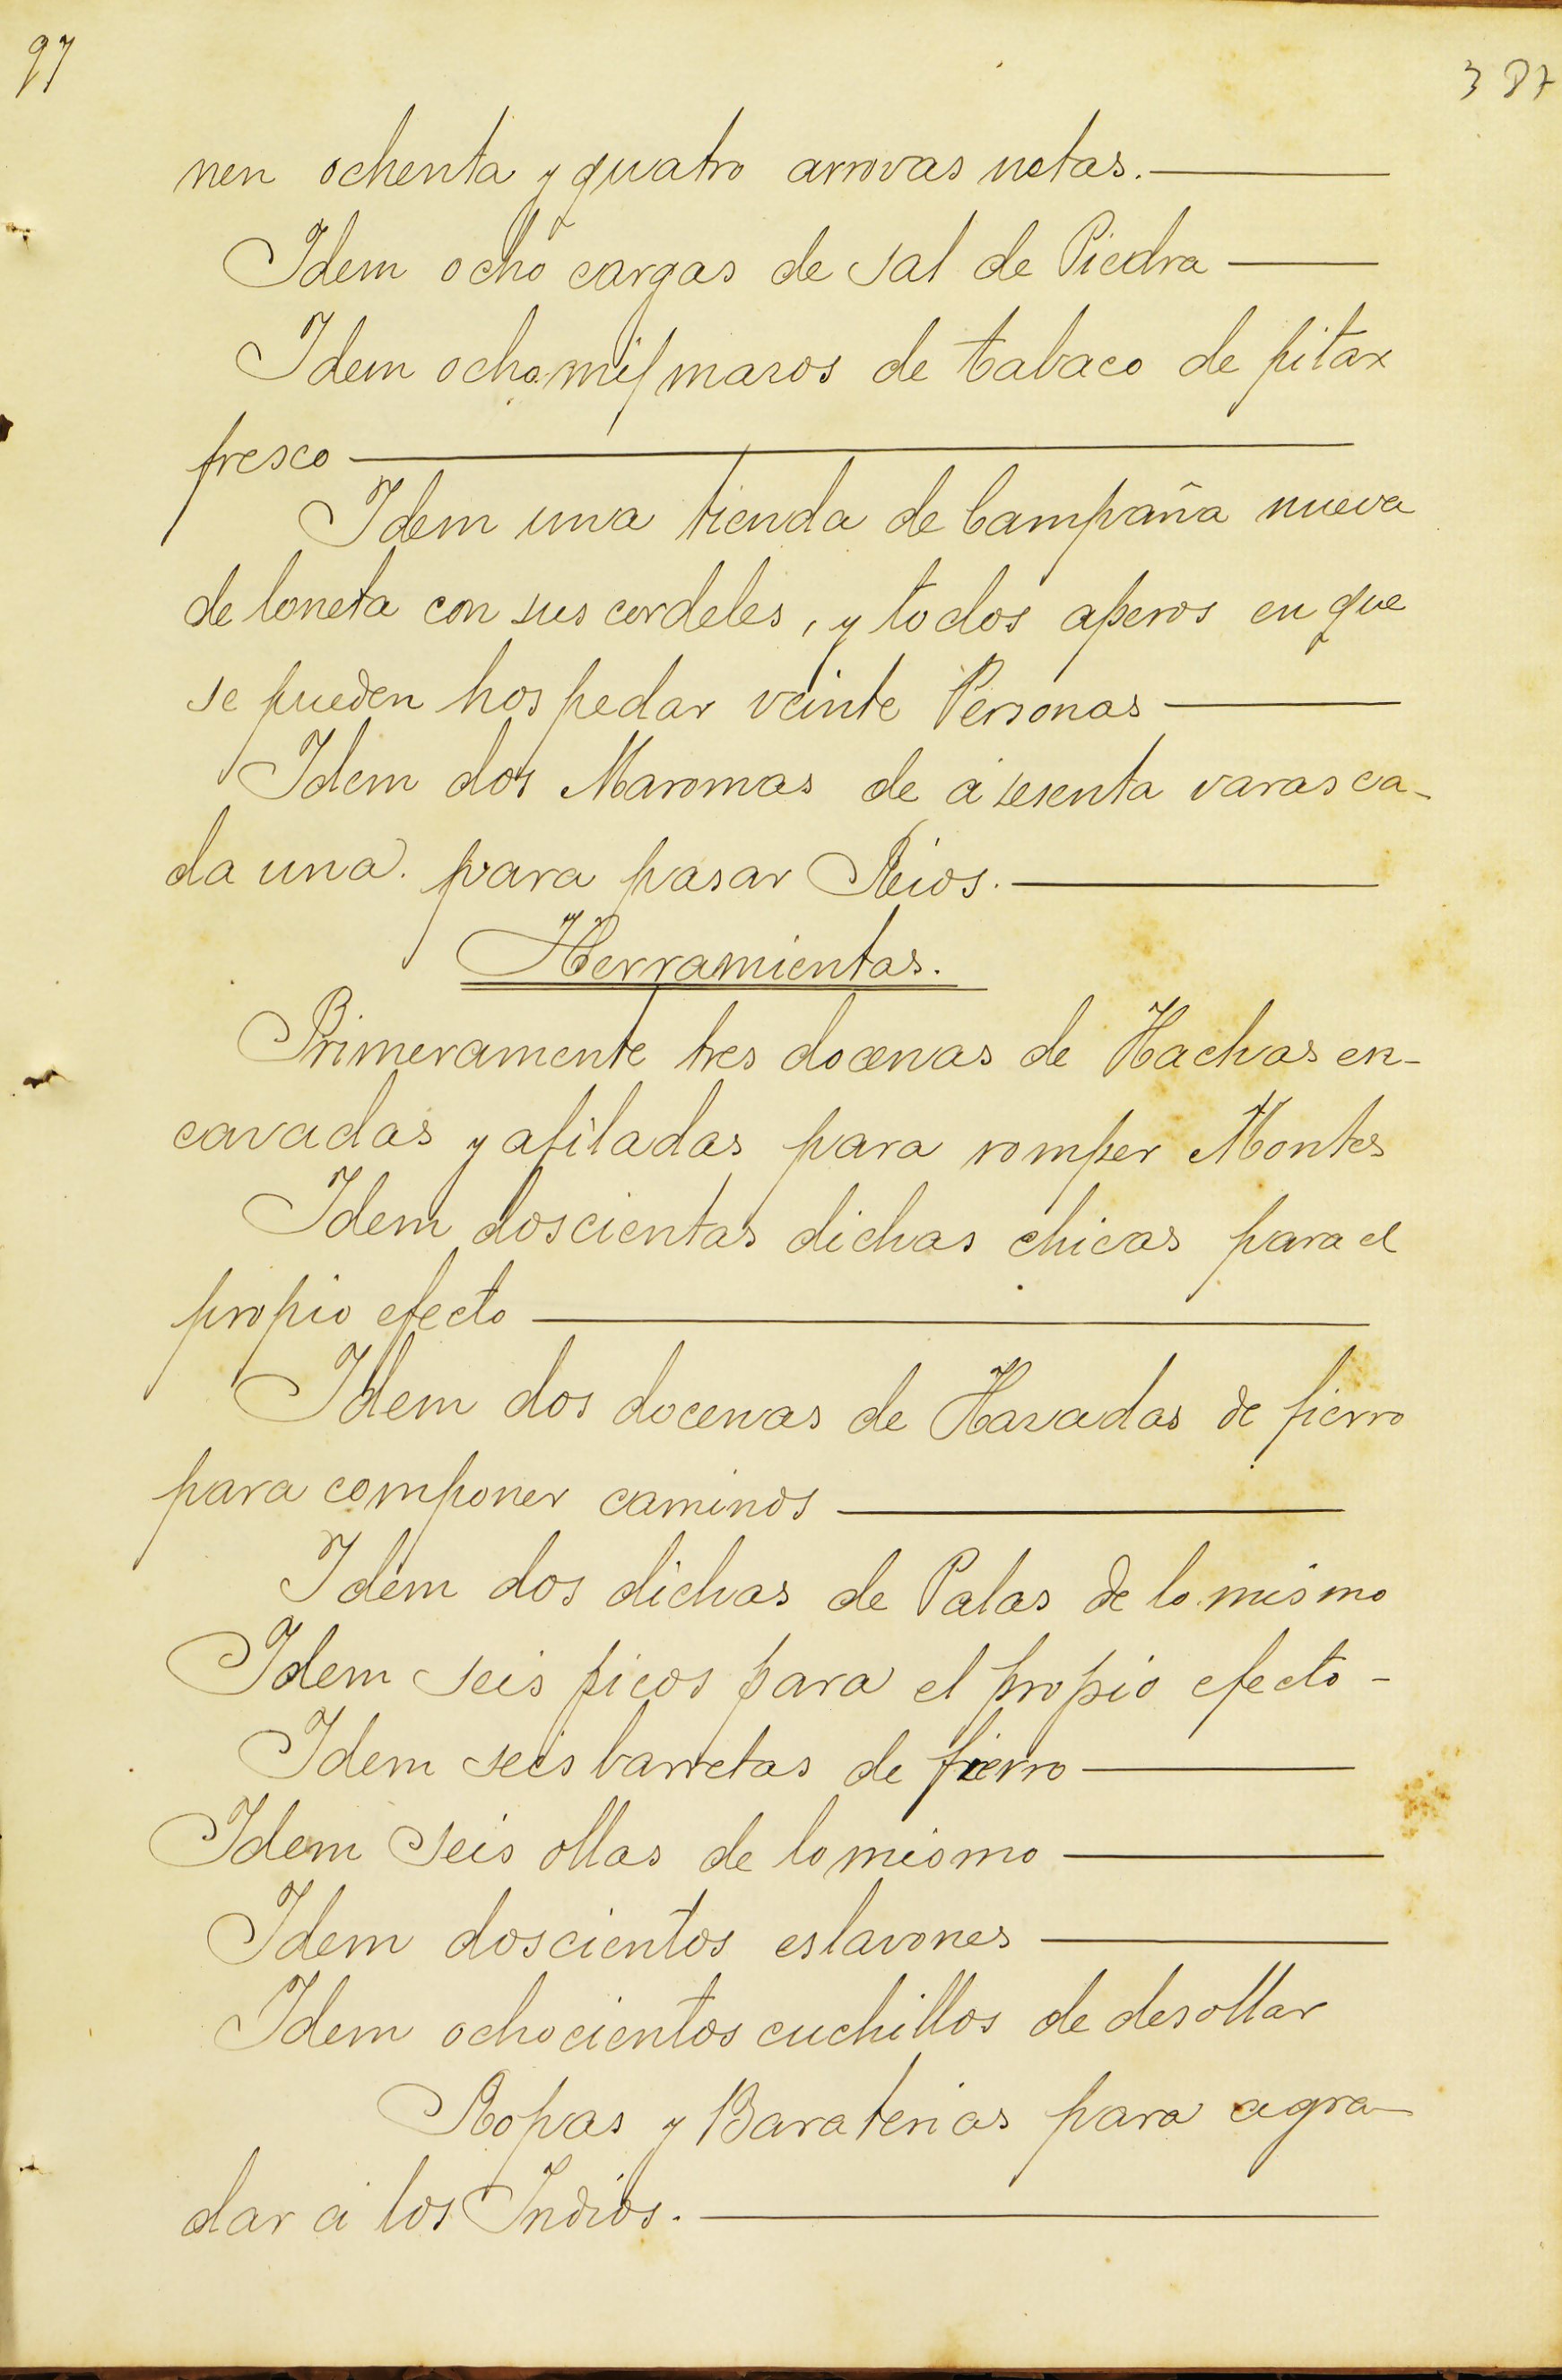 97
387
nen ochenta y quatro arrovas netas.
Idem ocho cargas de sal de Piedra
Idem ocho mil masos de tabaco de pitar
fresco
Idem una tienda de Campaña nueva
de loneta con sus cordeles, y todos aperos en que
se pueden hospedar veinte Personas
Idem dos Maromas de á sesenta varas ca-
da una. para pasar Rios.
Herramientas.
Primeramente tres docenas de Hachas en-
cavadas y afiladas para romper Montes
Idem doscientas dichas chicas para el
propio efecto
Idem dos docenas de Hasadas de fierro
para componer caminos
Idem dos dichas de Palas de lo mismo
Idem seis picos para el propio efecto -
Idem seis barretas de fierro
Idem seis ollas de lo mismo
Idem doscientos eslavones
Idem ochocientos cuchillos de desollar
Ropas y Baraterias para agra-
dar á los Indios.